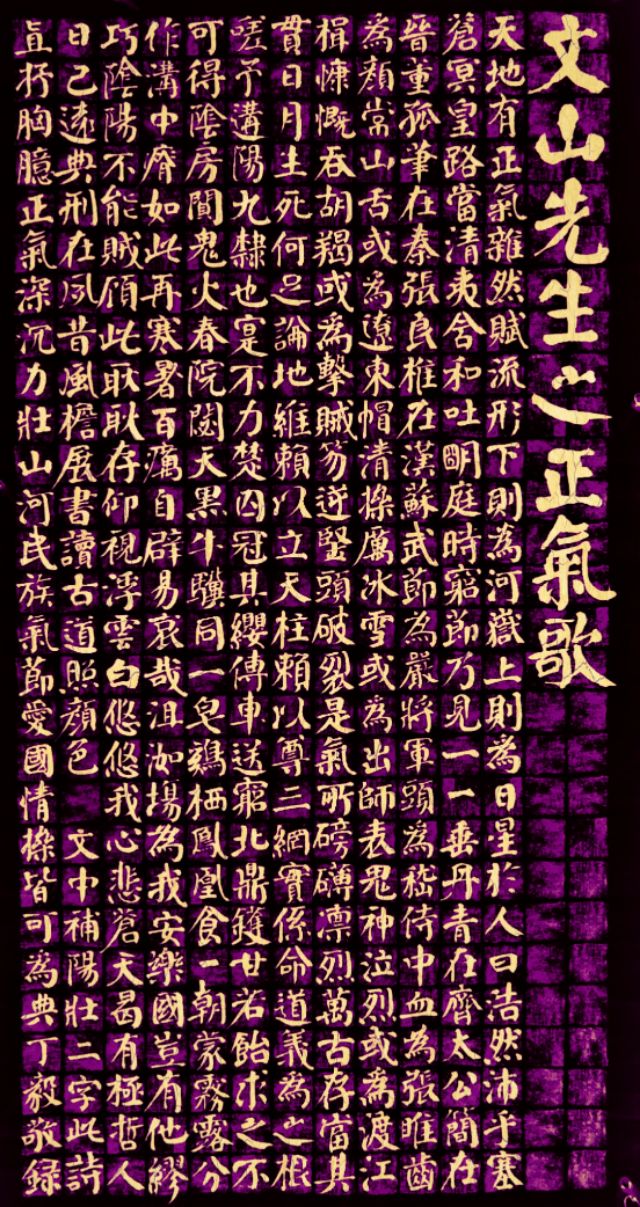 文山先生之正氣歌
天地有正氣雜然賦流形下則為河嶽上則為日星於人曰浩然沛乎塞
蒼冥皇路當清夷舍和吐明庭時窮節乃見一一垂丹青在齊太公簡在
晉董孤筆在秦張良椎在漢蘇武節為嚴將軍頭為嵇侍中血為張睢齒
為顏常山舌或為遼東帽清操厲冰雪或為出師表鬼神泣烈或為渡江
楫慷慨吞胡羯或為擊賊笏逆豎頭破裂是氣所磅礡凛烈萬古存當其
貫日月生死何足論地維賴以立天柱賴以尊三綱實係命道義為之根
嗟予遘陽九隸也寔不力楚囚冠其纓傳車送窮北鼎鑊甘若飴求之不
可得陰房闃鬼火春院閟天黑牛驥同一皂鷄栖鳳凰食一朝蒙霧露分
作溝中瘠如此再寒暑百癘自辟易哀哉沮洳場為我安樂國豈有他繆
巧陰陽不能賊顧此耿耿存仰視浮雲白悠悠我心悲蒼天曷有極哲人
日已遠典刑在夙昔風檐展書讀古道照顏色 文中補陽壯二字此詩
真抒胸臆正氣深沉力壯山河民族氣節愛國情操皆可為典丁毅敬録